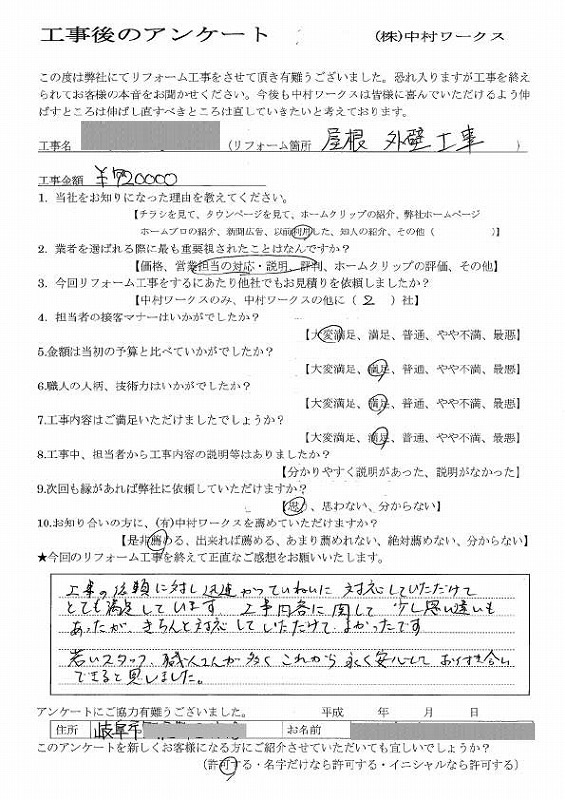 工事後のアンケート
(株)中村ワークス
この度は弊社にてリフォーム工事をさせて頂き有難うございました。恐れ入りますが工事を終え
られてお客様の本音をお聞かせください。今後も中村ワークスは皆様に喜んでいただけるよう伸
ばすところは伸ばし直すべきところは直していきたいと考えております。
工事名 (リフォーム箇所 屋根 外壁工事 )
工事金額 ¥ 20000
1. 当社をお知りになった理由を教えてください。
【チラシを見て、タウンページを見て、ホームクリップの紹介、弊社ホームページ
ホームプロの紹介、新聞広告、以前利用した、知人の紹介、その他( )】
2. 業者を選ばれる際に最も重要視されたことはなんですか?
【価格、営業担当の対応・説明、評判、ホームクリップの評価、その他】
3. 今回リフォーム工事をするにあたり他社でもお見積りを依頼しましたか?
【中村ワークスのみ、中村ワークスの他に( 2 )社】
4. 担当者の接客マナーはいかがでしたか?
【大変満足、満足、普通、やや不満、最悪】
5.金額は当初の予算と比べていかがでしたか?
【大変満足、満足、普通、やや不満、最悪】
6.職人の人柄、技術力はいかがでしたか?
【大変満足、満足、普通、やや不満、最悪】
7.工事内容はご満足いただけましたでしょうか?
【大変満足、満足、普通、やや不満、最悪】
8.工事中、担当者から工事内容の説明等はありましたか?
【分かりやすく説明があった、説明がなかった】
9.次回も縁があれば弊社に依頼していただけますか?
【思う、思わない、分からない】
10.お知り合いの方に、(有)中村ワークスを薦めていただけますか?
【是非薦める、出来れば薦める、あまり薦めれない、絶対薦めない、分からない】
★今回のリフォーム工事を終えて正直なご感想をお願いいたします。
工事の依頼に対し迅速かつていねいに対応していただけて
とても満足しています 工事内容に関して 少し思い違いも
あったが、きちんと対応していただけて よかったです
若いスタッフ、職人さんが多く これから永く安心して お付き合い
できると思いました。
アンケートにご協力有難うございました。 平成 年 月 日
住所 岐阜市 お名前
このアンケートを新しくお客様になる方にご紹介させていただいても宜しいでしょうか?
(許可する・名字だけなら許可する・イニシャルなら許可する)